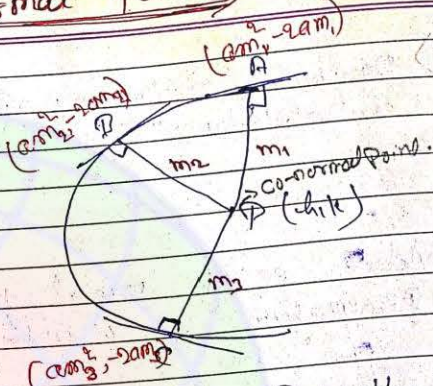 (am₁², -2am₁)
A
(am₂², -2am₂)
B
m₂
m₁
Co-normal Point.
P (h,k)
m₃
(am₃², -2am₃)